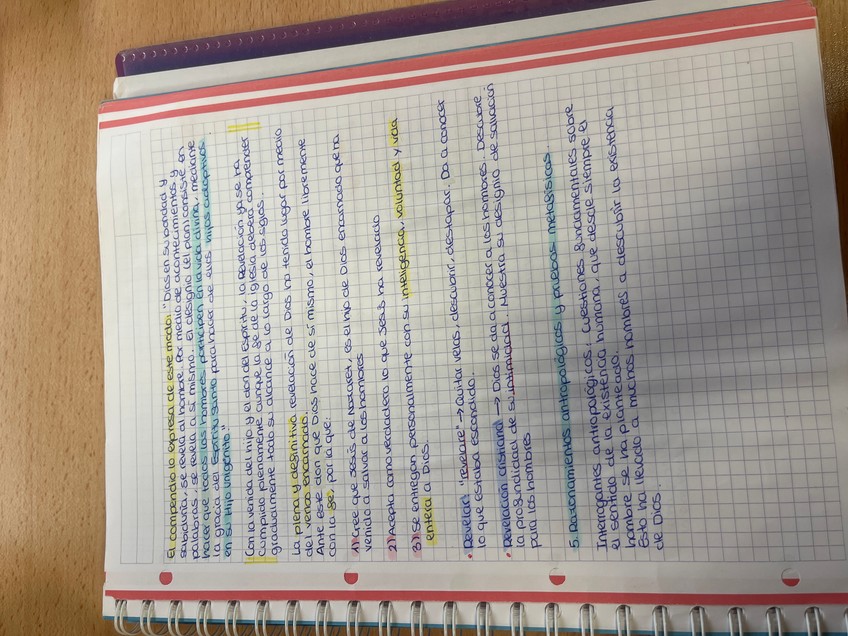 El compendio lo expresa de este modo: "Dios en su bondad y
sabiduría, se revela al hombre. Por medio de acontecimientos y
palabras se revela a sí mismo, el designio (el plan) consiste en
hacer que todos los hombres participen en la vida divina, mediante
la gracia del Espíritu Santo para hacer de ellos hijos adoptivos
en su Hijo unigenito"
Con la venida del hijo y el don del Espíritu, la Revelación ya se ha
cumplido plenamente aunque la fe de la Iglesia deberá comprender
gradualmente todo su alcance a lo largo de los siglos.
La plena y definitiva revelación de Dios ha tenido lugar por medio
del verbo encarnado.
Ante este don que Dios hace de sí mismo, el hombre libremente
con la fe, por la que:
1) Cree que Jesús de Nazaret, es el hijo de Dios encarnado que ha
venido a salvar a los hombres
2) Acepta como verdadero lo que Jesús ha revelado
3) Se entregan personalmente con su inteligencia, voluntad y vida
entera a Dios.
• Revelar: "revelare" → Quitar velos, descubrir, destapar. Da a conocer
lo que estaba escondido.
• Revelación cristiana → Dios se da a conocer a los hombres. Descubre
la profundidad de su intimidad. Muestra su designio de salvación
para los hombres
5. Razonamientos antropológicos y pruebas metafísicas.
Interrogantes antropológicos; cuestiones fundamentales sobre
el sentido de la existencia humana, que desde siempre el
hombre se ha planteado.
Esto ha llevado a muchos hombres a descubrir la existencia
de Dios.